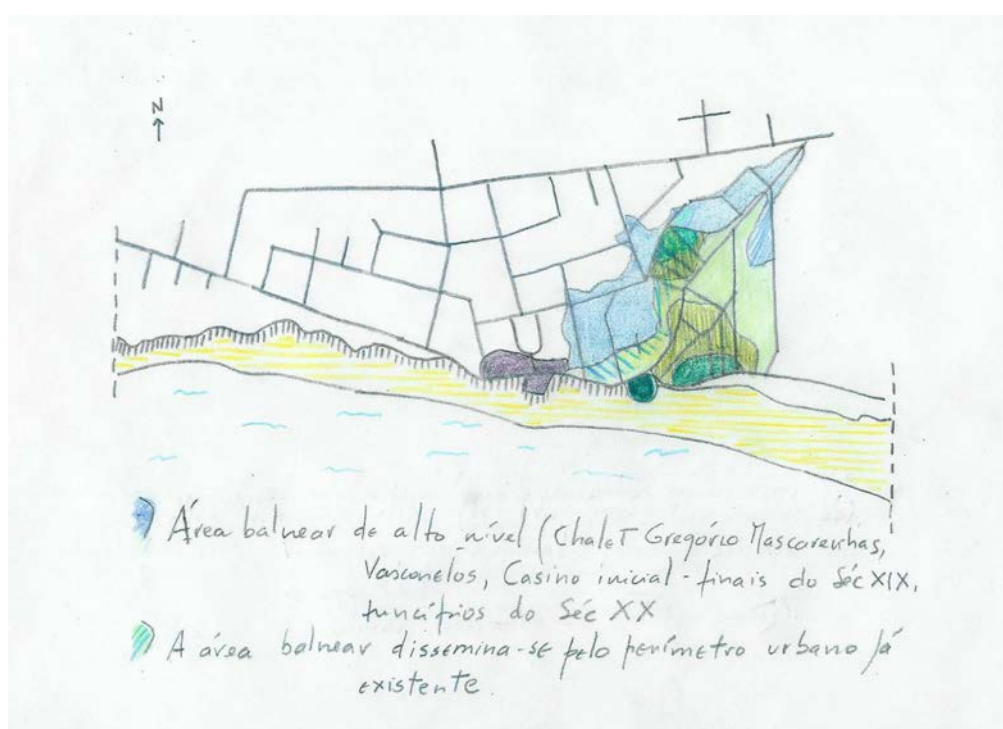 N
Área balnear de alto nível (Chalet Gregório Mascarenhas,
Vasconcelos, Casino inicial - finais do Séc XIX,
do Séc XX
A área balnear dissemina-se pelo perímetro urbano já
existente.